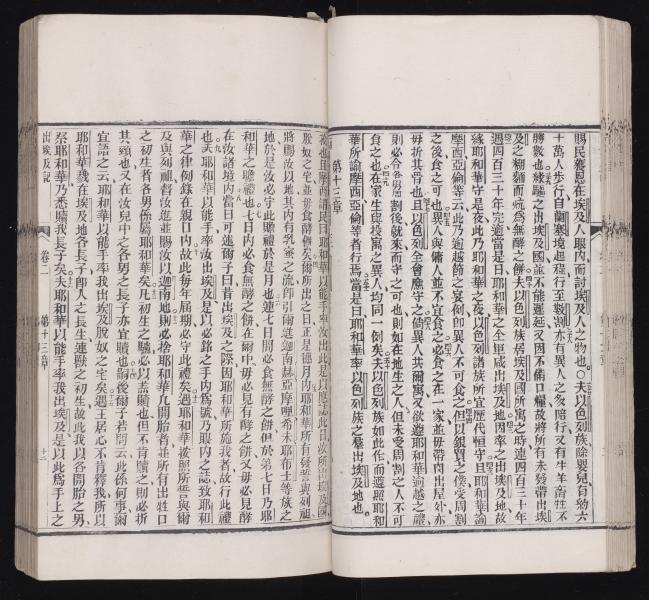 賜民獲恩在埃及人眼內而討埃及人之物也夫以色列族除嬰兒自約六
十萬人步行自蘭塞境起程行至數割亦有異人之多陪行又有牛羊畜牲不
勝數也緣驅之出埃及國並不能遲延又因不備口糧故將所有未發帶出埃
及之麵糰而炕爲無酵之餅夫以色列族居埃及國所寓之時連四百三十年
週四百三十年完適當是日耶和華之全軍咸出埃及地因率之出埃及地故
緣耶和華守是夜此乃耶和華之夜以色列諸族所宜歷代恒守且耶和華諭
摩西亞倫等云此乃逾越節之宴例即異人不可食之但以銀買之僕受周割
之後食之可也異人與傭人並不宜食之必食之在一家並毋帶肉出屋外亦
毋折其骨也且以色列全會應守之倘異人共爾寓又欲遵耶和華逾越之禮
則必令各男周割後就來而守之可也則如在地生之人但未受周割之人不可
食之也在家生與投寓之異人均同一例矣夫以色列族如此作而遵照耶和
華所諭摩西亞倫等者行焉當是日耶和華率以色列族之羣出埃及地也
第十三章
脫奴之宅並毋食酵餅矣爾所出之日正是穗月內耶和華所有發誓與列祖
將賜汝以地其內有乳蜜之流即引爾進迦南赫亞摩哩希未耶布士等族之
地於是汝必守此贈禮於是月也連七日間必食無酵之餅但於第七日乃耶
和華之瞻禮也七日內必食無酵之餅在爾中毋必見有酵之餅又毋必見酵
在汝諸境內當日可述爾子曰昔出埃及之際因耶和華所施我者故行此禮
也哉耶和華以能手率汝出埃及是以必銘之手內爲號乃眼內之誌致耶和
華之律例錄在親口內故此每年屆期必守此禮矣遇耶和華按照所誓與爾
及與列祖督汝進並賜汝以迦南地則必捨耶和華凡開胎者並所有出牲口
之初生者各男係屬耶和華矣凡初生之驢必以羔贖也但不肯贖之則必折
其頸也又在汝兒中之各男之長子亦宜贖也嗣後爾子若問云此係何事爾
宜語之云耶和華以能手率我出埃及脫奴之宅矣遇王居心不肯釋我所以
耶和華戮在埃及地各長子即人之長生連獸之初生故此我以各開胎之男
祭耶和華乃悉贖我長子矣夫耶和華以能手率我出埃及是以此爲手上之
出埃及記 卷二 第十三章